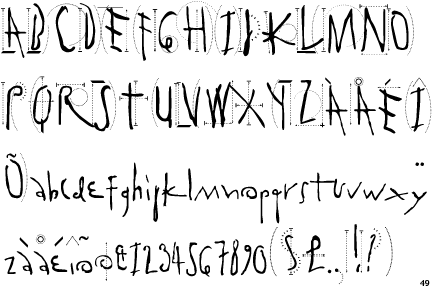 ABCDEFGHIJKLMNO
PQRSTUVWXYZÀÅÉÎ
Õabcdefghijklmnopqrstuvwxÿ
zàåéîõø&1234567890($£..!?)
49